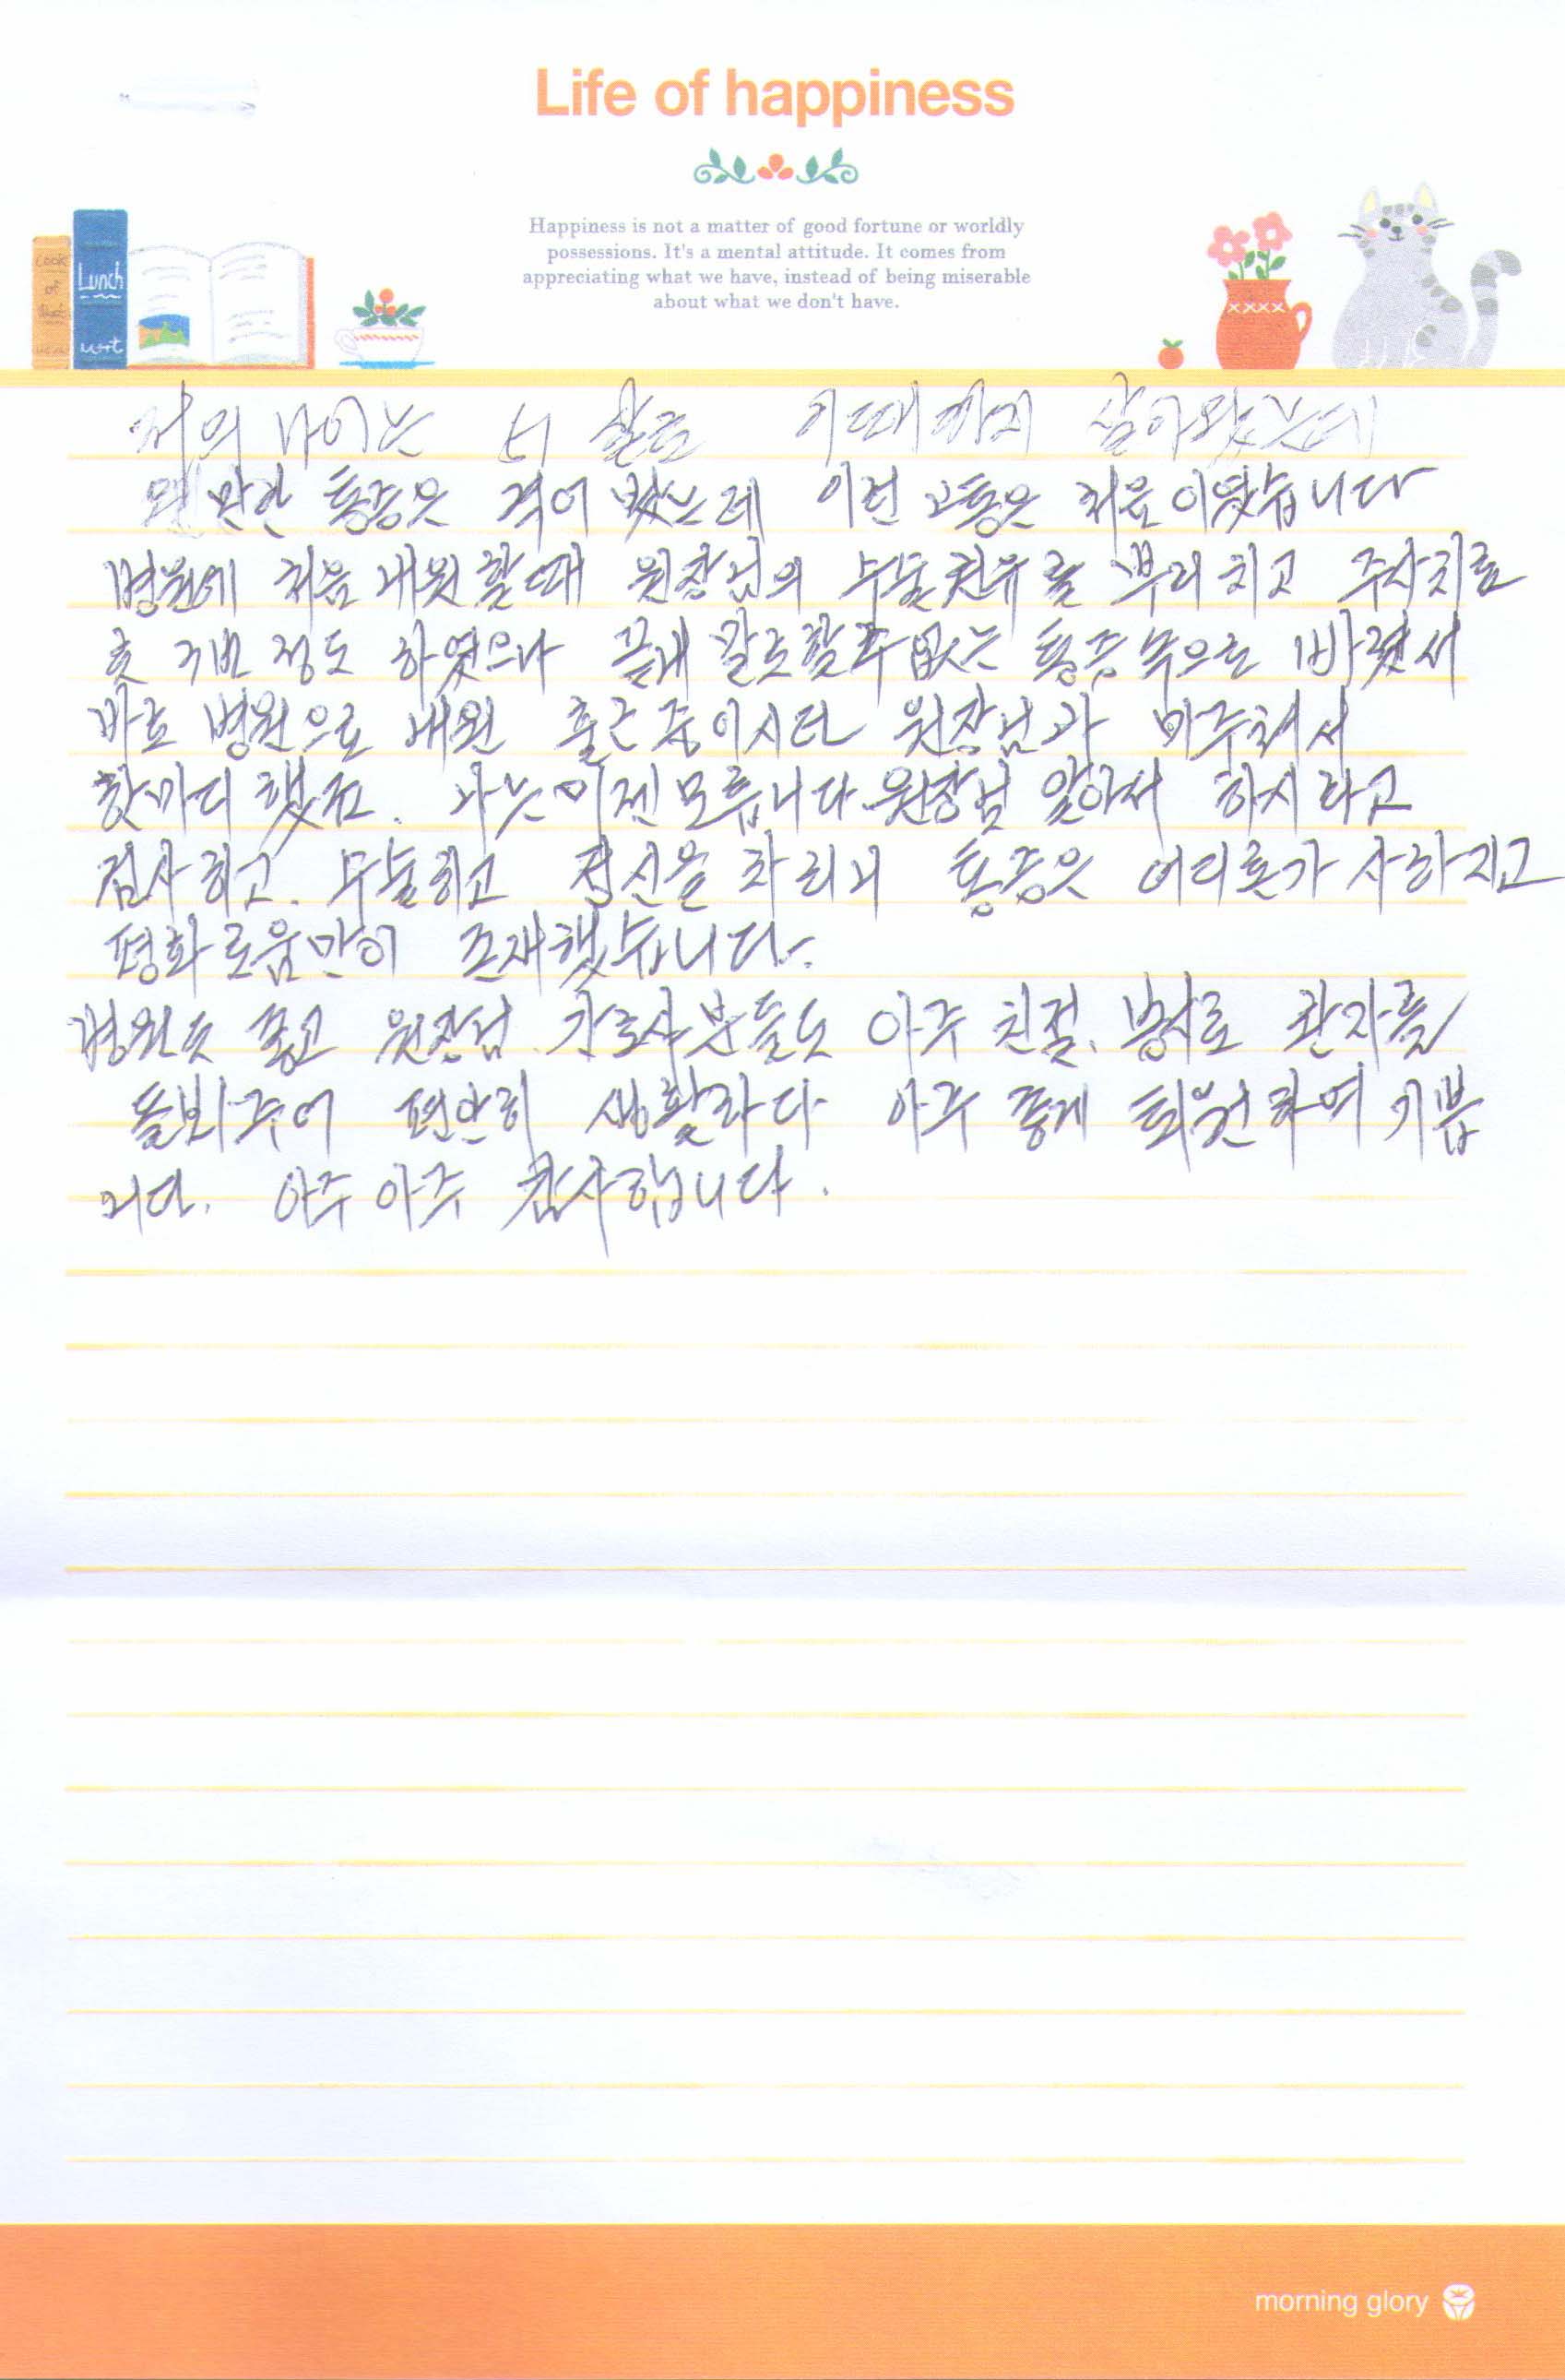 Life of happiness
Happiness is not a matter of good fortune or worldly
possessions. It's a mental attitude. It comes from
appreciating what we have, instead of being miserable
about what we don't have.
Lunch
저의 나이는 살로 이때까지 살아왔는데
왠만한 통증은 격어 봤는데 이런 고통은 처음이였습니다
병원에 처음 내원할때 원장님의 수술권유를 뿌리치고 주사치료
로 3번 정도 하였으나 끝내 말로할수없는 통증속으로 빠졌서
바로 병원으로 내원 출근중이시던 원장님과 마주쳐서
한마디 했죠. 나는 이젠 모릅니다. 원장님 알아서 하시라고
검사하고. 수술하고 정신을 차리니 통증은 어디론가 사라지고
평화로움만이 존재했습니다.
병원도 좋고 원장님. 간호사분들도 아주 친절. 환자를
돌봐주어 편안히 생활하다 아주 좋게 퇴원하여 기쁩
니다. 아주 아주 감사합니다.
morning glory